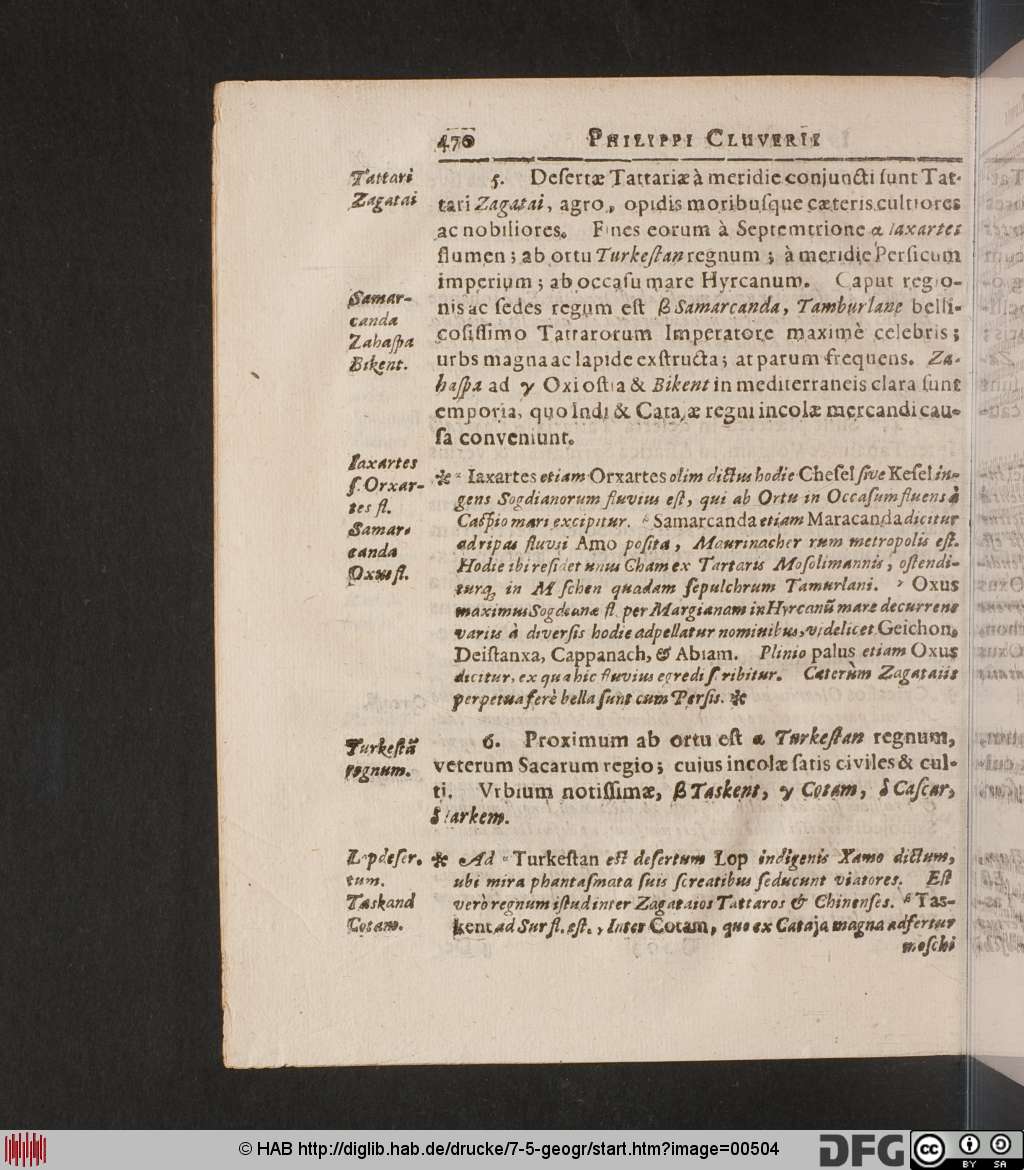 470 PHILIPPI CLUVERII
Tattari
Zagatai
5. Desertæ Tattariæ à meridie conjuncti sunt Tat-
tari Zagatai, agro, opidis moribusque cæteris cultiores
ac nobiliores. Fines eorum à Septemtrione α Iaxartes
flumen; ab ortu Turkestan regnum; à meridie Persicum
imperium; ab occasu mare Hyrcanum. Caput regio-
Samar-
canda
Zahaspa
Bikent.
nis ac sedes regum est β Samarcanda, Tamburlane belli-
cosissimo Tatrarorum Imperatore maximè celebris;
urbs magna ac lapide exstructa; at parum frequens. Za-
haspa ad γ Oxi ostia & Bikent in mediterraneis clara sunt
emporia, quo Indi & Cataiæ regni incolæ mercandi cau-
sa conveniunt.
Iaxartes
s. Orxar-
tes fl.
Samar-
canda
Oxus fl.
* α Iaxartes etiam Orxartes olim dictus hodie Chesel sive Kesel in-
gens Sogdianorum fluvius est, qui ab Ortu in Occasum fluens à
Caspio mari excipitur. β Samarcanda etiam Maracanda dicitur
ad ripas fluvii Amo posita, Maurinacher rum metropolis est.
Hodie ibi residet unus Cham ex Tartaris Mosolimannis, ostendi-
turq; in M schen quadam sepulchrum Tamurlani. γ Oxus
maximus Sogdianæ fl. per Margianam in Hyrcanũ mare decurrens
varius à diversis hodie adpellatur nominibus, videlicet Geichon,
Deistanxa, Cappanach, & Abiam. Plinio palus etiam Oxus
dicitur, ex qua hic fluvius egredi scribitur. Cæterùm Zagataiis
perpetua ferè bella sunt cum Persis. *
Turkestã
regnum.
6. Proximum ab ortu est α Turkestan regnum,
veterum Sacarum regio; cuius incolæ satis civiles & cul-
ti. Vrbium notissimæ, β Taskent, γ Cotam, δ Cascar,
δ Iarkem.
Lop deser-
tum.
Taskand
Cotam.
* Ad α Turkestan est desertum Lop indigenis Xamo dictum,
ubi mira phantasmata suis screatibus seducunt viatores. Est
verò regnum istud inter Zagataios Tattaros & Chinenses. β Tas-
kent ad Sur fl. est. γ Inter Cotam, quo ex Cataja magna adfertur
moschi
© HAB http://diglib.hab.de/drucke/7-5-geogr/start.htm?image=00504
DFG
cc
BY SA